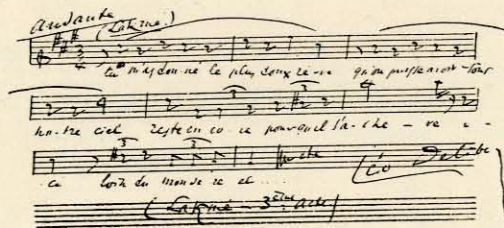 Andante (Lakmé.)
tu m'as don-né le plus doux rê-ve qu'on puisse avoir sous
no-tre ciel reste en co-re pour qu'il s'a-chè-ve i-
ci loin du monde ré el...
Léo Delibes
(Lakmé - 3ème acte)